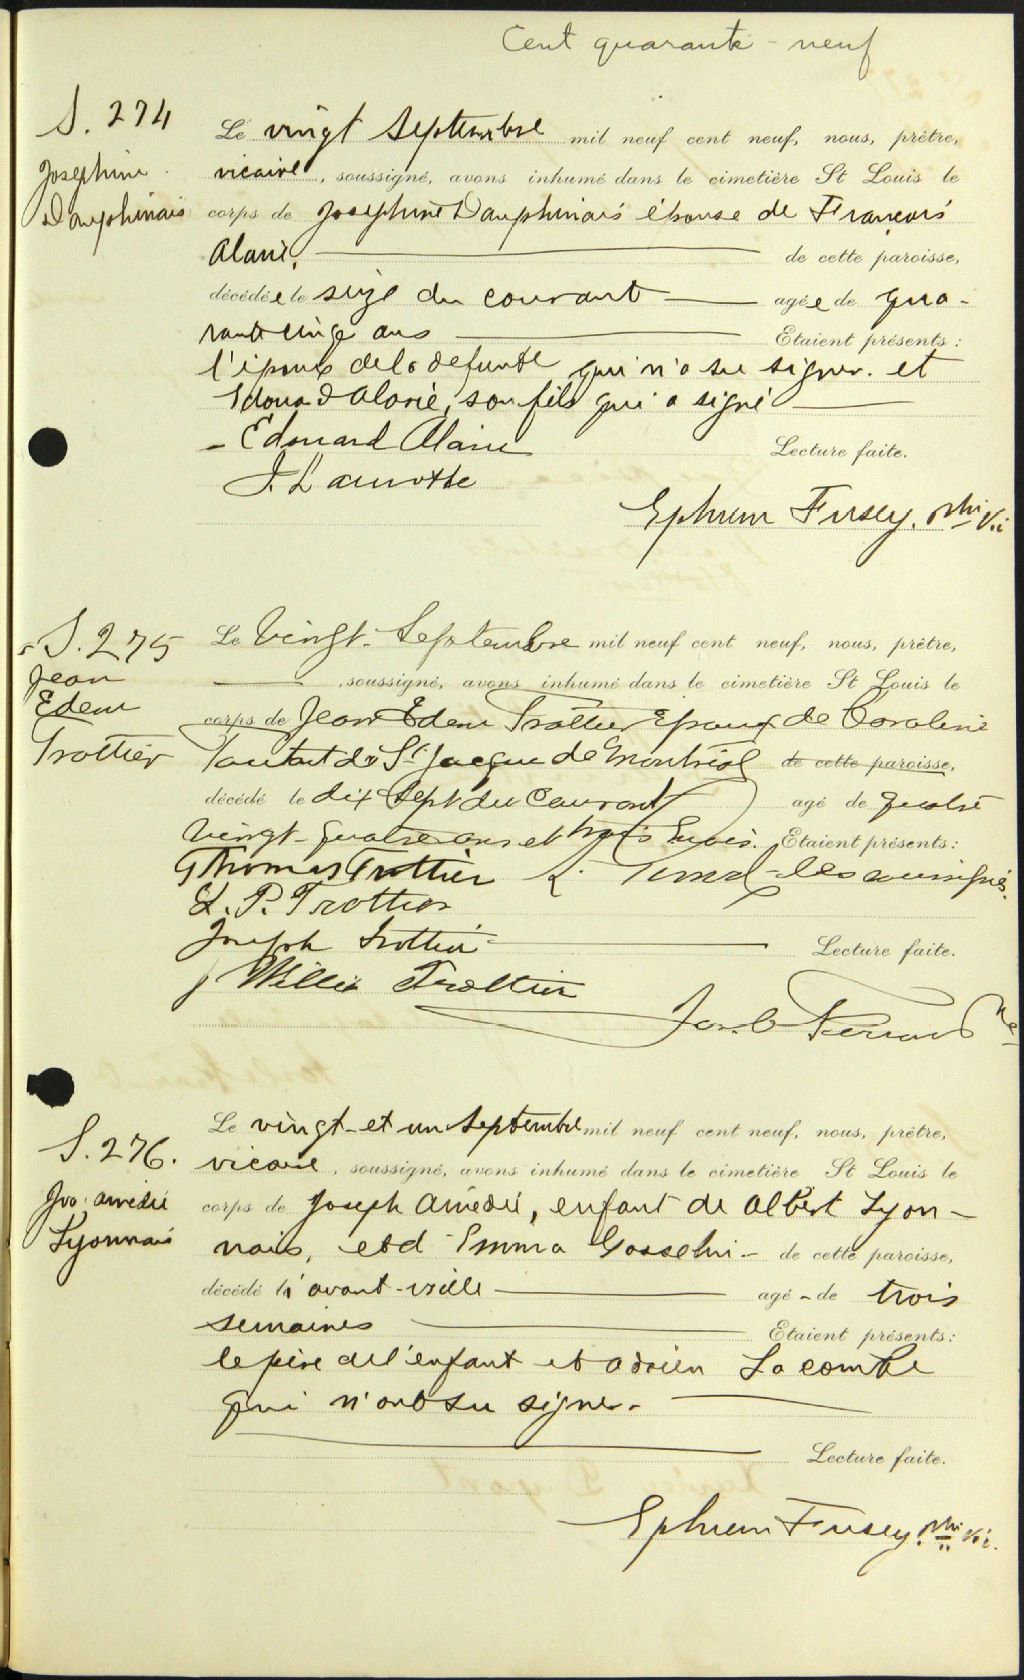 Cent quarante-neuf
S. 274
Josephine
Dauphinais
Le vingt Septembre mil neuf cent neuf, nous, prêtre,
vicaire, soussigné, avons inhumé dans le cimetière St Louis le
corps de Josephine Dauphinais épouse de François
Alarie, de cette paroisse,
décédée le seize du courant agée de qua-
rante cinq ans Etaient présents :
l'époux de la defunte qui n'a su signer. et
Edouard Alarie, son fils qui a signé
- Edouard Alarie Lecture faite.
J. Lamothe
Ephrem Fusey, ptre Vic
S. 275
Jean
Edem
Trottier
Le Vingt-Septembre mil neuf cent neuf, nous, prêtre,
soussigné, avons inhumé dans le cimetière St Louis le
corps de Jean Edem Trottier Epoux de Caroline
de St Jacque de Montréal de cette paroisse,
décédé le dix sept du Courant agé de quatre
Vingt-quatre ans et trois mois. Etaient présents :
Thomas Trottier les soussignés.
L. P. Trottier
Joseph Trottier Lecture faite.
Willie Trottier
S. 276.
Jos. amédé
Lyonnais
Le vingt-et un Septembre mil neuf cent neuf, nous, prêtre,
vicaire, soussigné, avons inhumé dans le cimetière St Louis le
corps de Joseph amédé, enfant de Albert Lyon-
nais, et d'Emma Gosselin - de cette paroisse,
décédé l'avant-veille agé - de trois
semaines Etaient présents :
le père de l'enfant et adrien Lacombe
qui n'ont su signer.
Lecture faite.
Ephrem Fusey, ptre Vic.